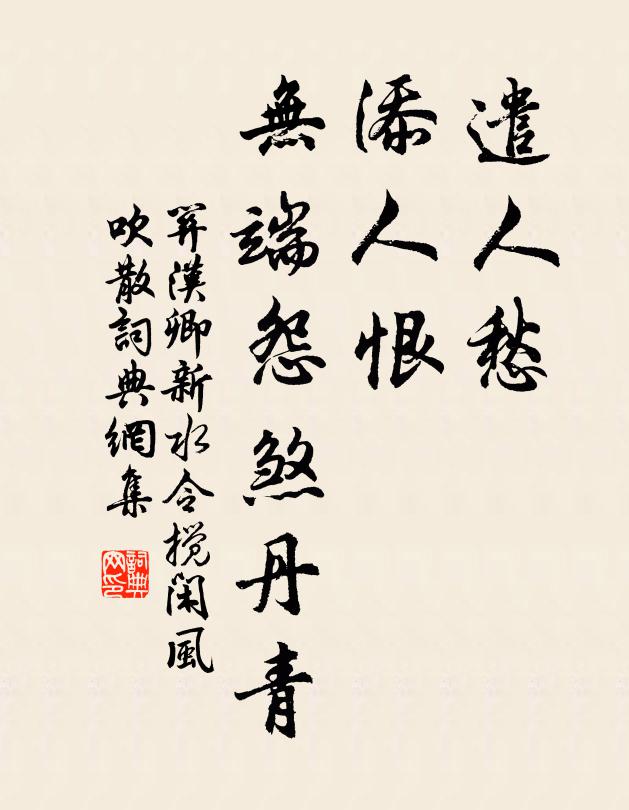 遣人愁
添人恨
無端怨煞丹青
關漢卿新水令攪閑風
吹散詞典網集
詞典網印